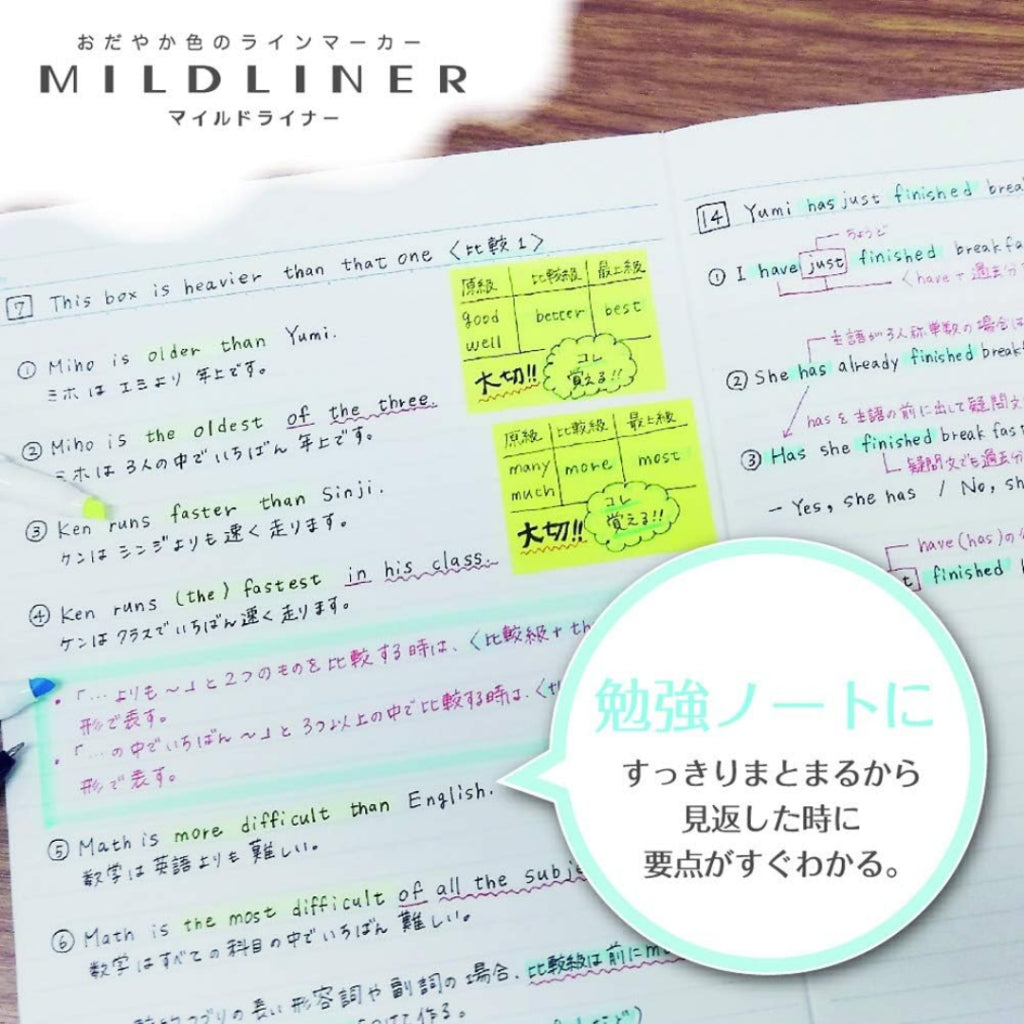 おだやか色のラインマーカー
MILDLINER
マイルドライナー
7 This box is heavier than that one 〈比較1〉
① Miho is older than Yumi.
ミホは エミより 年上です。
② Miho is the oldest of the three.
ミホは 3人の中でいちばん 年上です。
③ Ken runs faster than Sinji.
ケンは シンジよりも 速く 走ります。
④ Ken runs (the) fastest in his class.
ケンは クラスでいちばん 速く 走ります。
・「…よりも〜」と2つのものを比較する時は、〈比較級+th
形で表す。
・「…の中でいちばん〜」と 3つ以上の中で比較する時は、〈th
形で表す。
⑤ Math is more difficult than English.
数学は 英語よりも 難しい。
⑥ Math is the most difficult of all the subje
数学はすべての科目の中でいちばん 難しい。
つづりの長い形容詞や副詞の場合、比較級は前にmo
つけて作る。
原級 比較級 最上級
good better best
well
大切!! コレ
覚える!!
原級 比較級 最上級
many more most
much
大切!! コレ
覚える!!
14 Yumi has just finished brea
ちょうど
① I have just finished breakfa
〈have+過去分
主語が3人称単数の場合は
② She has already finished break
hasを主語の前に出して疑問文
③ Has she finished breakfas
疑問文でも過去分
- Yes, she has / No, sh
have(has)の
t finished
勉強ノートに
すっきりまとまるから
見返した時に
要点がすぐわかる。